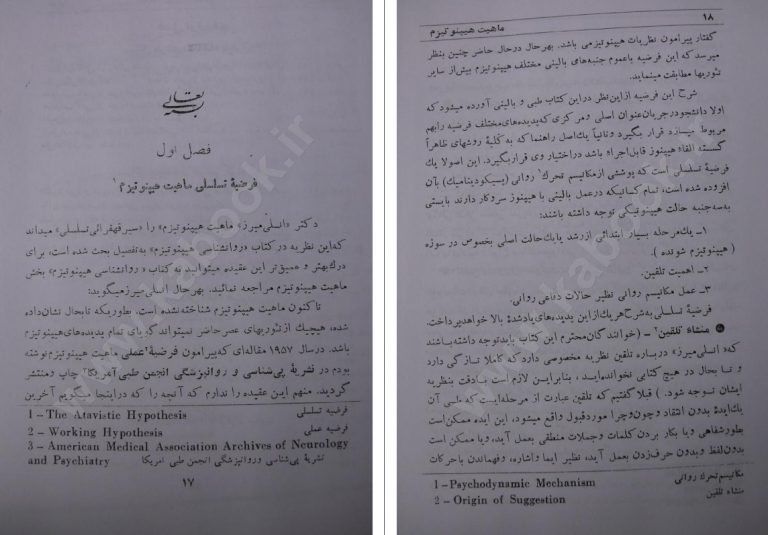 بسمه تعالی
فصل اول
فرضیهٔ تسلسلی ماهیت هیپنوتیزم ۱
دکتر «انسلی میرز» ماهیت هیپنوتیزم را «سیر قهقرائی تسلسلی» میداند
که این نظریه در کتاب «روانشناسی هیپنوتیزم» به تفصیل بحث شده است، برای
درك بهتر و عمیق‌تر این عقیده میتوانید به کتاب «روانشناسی هیپنوتیزم» بخش
ماهیت هیپنوتیزم مراجعه نمائید. بهرحال انسلی میرز میگوید:
تا کنون ماهیت هیپنوتیزم شناخته نشده است. بطوریکه تابحال نشان داده
شده، هیچیك از تئوریهای عصر حاضر نمیتواند گویای تمام پدیده‌های هیپنوتیزم
باشد. درسال ۱۹۵۷ مقاله‌ای که پیرامون فرضیهٔ ۲ عملی ماهیت هیپنوتیزم نوشته
بودم در نشریهٔ پی‌شناسی و روانپزشگی انجمن طبی آمریکا ۳ چاپ و منتشر
گردید. منهم این عقیده را ندارم که آنچه را که دراینجا میگویم آخرین
1 – The Atavistic Hypothesis فرضیه تسلسلی
2 – Working Hypothesis فرضیه عملی
3 – American Medical Association Archives of Neurology
and Psychiatry نشریهٔ پی‌شناسی وروانپزشگی انجمن طبی امریکا
۱۷
۱۸ ماهیت هیپنوتیزم
گفتار پیرامون نظریات هیپنوتیزمی باشد. بهرحال درحال حاضر چنین بنظر
میرسد که این فرضیه باعموم جنبه‌های بالینی مختلف هیپنوتیزم بیش از سایر
تئوریها مطابقت مینماید.
شرح این فرضیه از این نظر دراین کتاب طبی و بالینی آورده میشود که
اولا دانشجو درجریان عنوان اصلی ومرکزی که پدیده‌های مختلف فرضیه را بهم
مربوط میسازد قرار بگیرد وثانیاً یك اصل راهنما که به کلیهٔ روشهای ظاهراً
گسسته القاء هیپنوز قابل اجراء باشد دراختیار وی قرار بگیرد. این اصول یك
فرضیهٔ تسلسلی است که پوششی ازمکانیسم تحرك ۱ روانی (پسیکودینامیك) بآن
افزوده شده است، تمام کسانیکه درعمل بالینی با هیپنوز سروکار دارند بایستی
به‌سه‌جنبه حالت هیپنوتیکی توجه داشته باشند:
۱ـ یك مرحله بسیار ابتدائی از رشد یا یك حالت اصلی بخصوص در سوژه
( هیپنوتیزم شونده ).
۲ـ اهمیت تلقین.
۳ـ عمل مکانیسم روانی نظیر حالات دفاعی روانی.
فرضیهٔ تسلسلی به شرح هریك از این پدیده‌های یاد شدهٔ بالا خواهد پرداخت.
منشاء تلقین ۲ – (خوانندگان محترم این کتاب باید توجه داشته باشند
که «انسلی میرز» درباره تلقین نظریه مخصوصی دارد که کاملا تازگی دارد
و تا بحال در هیچ کتابی نخوانده‌اید، بنابراین لازم است بادقت بنظریه
ایشان توجه شود.) قبلا گفتیم که تلقین عبارت از مرحله‌ایست که طی آن
یك ایدهٔ بدون انتقاد وچون‌وچرا موردقبول واقع میشود، این ایده ممکن است
بطورشفاهی وبا بکار بردن کلمات وجملات منطقی بعمل آید، ویا ممکن است
بدون لفظ وبدون حرف‌زدن بعمل آید، نظیر ایما واشاره، وفهماندن باحرکات
1 – Psychodynamic Mechanism مکانیسم تحرك روانی
2 – Origin of Suggestion منشاء تلقین